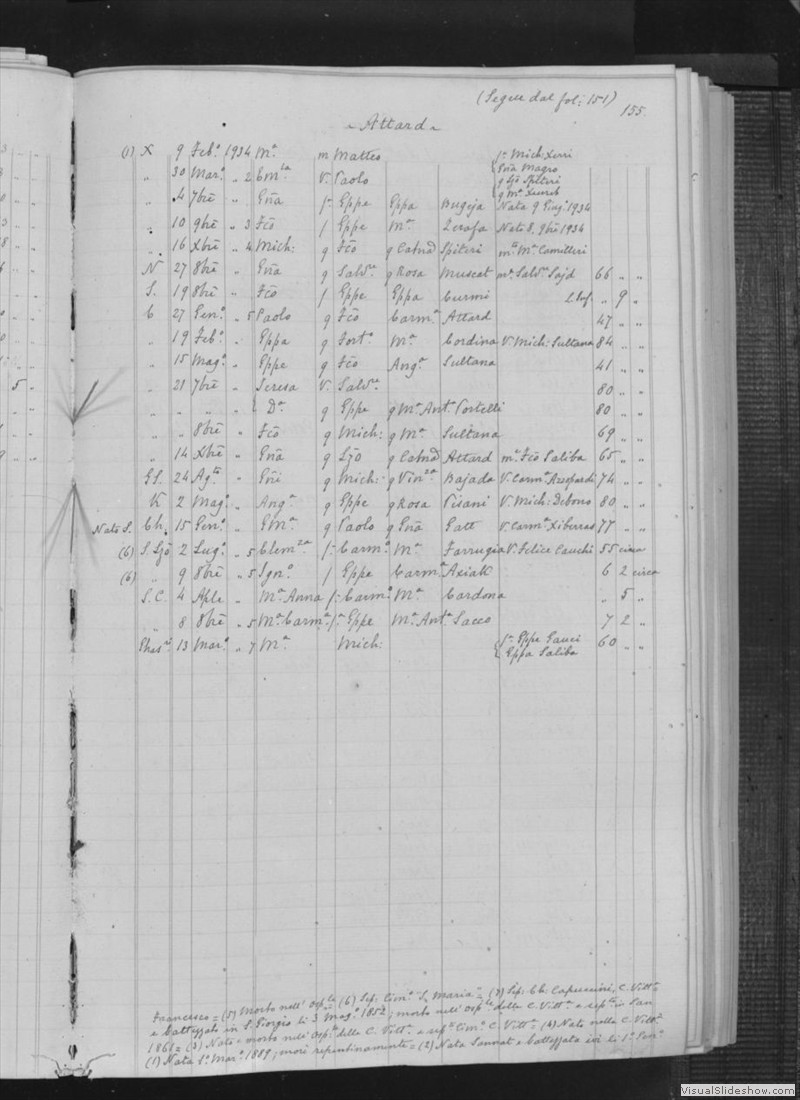 (Segue dal fol: 151)
155.
Attard
(1) X 9 Feb.º 1934 Mª m Matteo fª Mich: Xerri
Gña Magro
„ 30 Mar.º „ 2 Cm.ta V. Paolo g Gjo Spiteri
g Mª Xuereb
„ 4 7brē „ Gña fª Eppe Eppa Bugeja Nata 9 Giug.º 1934
„ 10 9brē „ 3 Fcō f Eppe Mª Zerafa Nato 8. 9brē 1934
„ 16 Xbrē „ 4 Mich: g Fcō g Catnª Spiteri mtº Mª Camilleri
N 27 8brē „ Gña g Salvre g Rosa Muscat mª Salvre Sajd 66 „ „
S. 19 8brē „ Fcō f Eppe Eppa Curmi „ 9 „
C 27 Gen.º „ 5 Paolo g Fcō Carmª Attard 47 „ „
„ 19 Feb.º „ Eppa g Fort.º Mª Cordina V. Mich: Sultana 84 „ „
„ 15 Mag.º „ Eppe g Fcō Angª Sultana 41 „ „
„ 21 7brē „ Teresa V. Salvre 80 „ „
„ „ „ „ Dª g Eppe g Mª Antª Portelli 80 „ „
„ „ 8brē „ Fcō g Mich: g Mª Sultana 69 „ „
„ 14 Xbrē „ Gña g Gjo g Catnª Attard mª Fcō Saliba 65 „ „
GS. 24 Ag.to „ g Mich: g Vinza Bajada V. Carmº Azzopardi 74 „ „
K 2 Mag.º „ Angª g Eppe g Rosa Pisani V. Mich: Debono 80 „ „
Nato S. Ch. 15 Gen.º „ g Paolo g Gña Gatt V. Carmº Xiberras 77 „ „
(6) S. Gjō 2 Lug.º „ 5 Clemza fª Carmº Mª Farrugia V. Felice Cauchi 55 circa
(6) „ 9 8brē „ 5 Ignº f Eppe Carmª Axiak 6 2 circa
S.C. 4 Aple „ Mª Anna fª Carmº Mª Cardona „ 5 „
„ 8 8brē „ 5 Mª Carmª fª Eppe Mª Antª Sacco 7 2 „
13 Mar.º „ 7 Mª Mich: fª Eppe Gauci 60 „ „
Eppa Saliba
Francesco = (5) Morto nell' Osple (6) Sep. Cimº S. Maria = (7) Sep. Ch. Capuccini, C. Vittª
e battezzato in S. Giorgio li 3 Magº 1852; morto nell' osple della C. Vittª e septo in San
1861 = (3) Nato e morto nell' Osple della C. Vittª e sepº Cimº C. Vittª = (4) Nato nella C. Vittª
(1) Nata 1º Marº 1889; morì repentinamente = (2) Nata Sannat e battezzata ivi li 1º Genº
VisualSlideshow.com